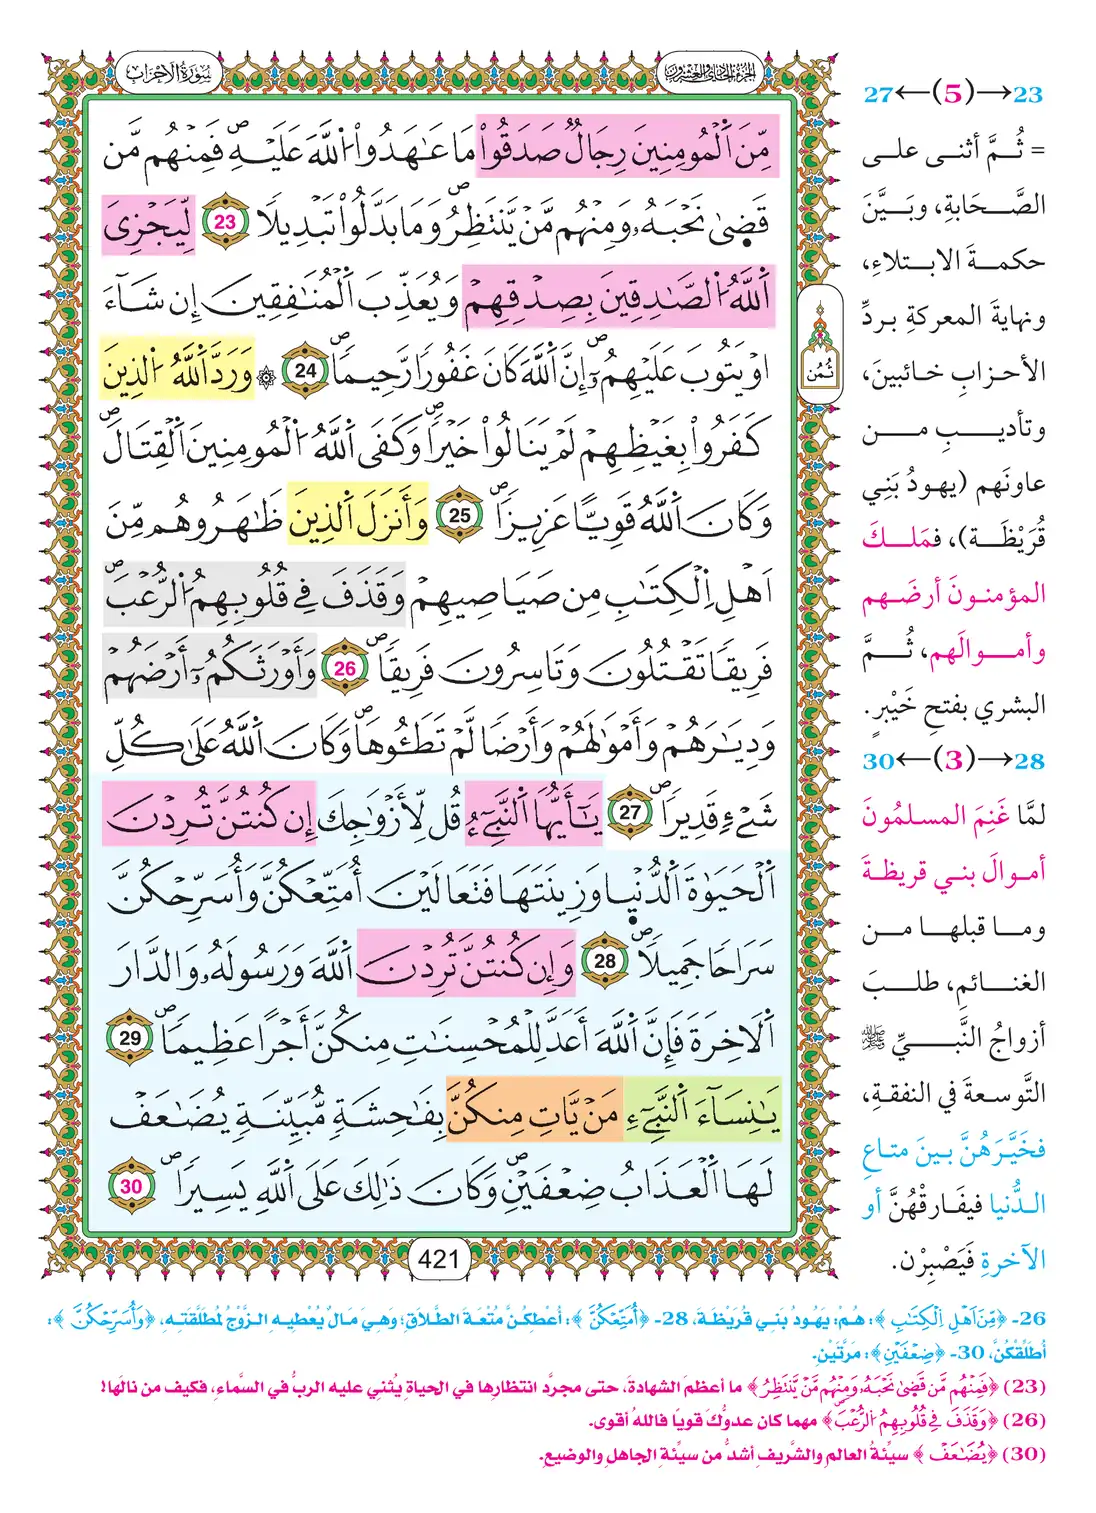 الجزء الحادي والعشرون
سورة الأحزاب
مِّنَ اَ۬لْمُومِنِينَ رِجَالٞ صَدَقُواْ مَا عَٰهَدُواْ اُ۬للَّهَ عَلَيْهِۖ فَمِنْهُم مَّن
قَض۪يٰ نَحْبَهُۥ وَمِنْهُم مَّنْ يَّنتَظِرُۖ وَمَا بَدَّلُواْ تَبْدِيلاٗ 23 لِّيَجْزِيَ
اَ۬للَّهُ اُ۬لصَّٰدِقِينَ بِصِدْقِهِمْ وَيُعَذِّبَ اَ۬لْمُنَٰفِقِينَ إِن شَآءَ
اَوْ يَتُوبَ عَلَيْهِمُۥٓۖ إِنَّ اَ۬للَّهَ كَانَ غَفُوراٗ رَّحِيماٗۖ 24 ۞ وَرَدَّ اَ۬للَّهُ اُ۬لذِينَ
كَفَرُواْ بِغَيْظِهِمْ لَمْ يَنَالُواْ خَيْراٗۖ وَكَفَى اَ۬للَّهُ اُ۬لْمُومِنِينَ اَ۬لْقِتَالَۖ
وَكَانَ اَ۬للَّهُ قَوِيّاً عَزِيزاٗۖ 25 وَأَنزَلَ اَ۬لذِينَ ظَٰهَرُوهُم مِّنَ
اَهْلِ اِ۬لْكِتَٰبِ مِن صَيَاصِيهِمْ وَقَذَفَ فِے قُلُوبِهِمُ اُ۬لرُّعْبَۖ
فَرِيقاٗ تَقْتُلُونَ وَتَاسِرُونَ فَرِيقاٗۖ 26 وَأَوْرَثَكُمُۥٓ أَرْضَهُمْ
وَدِيَٰرَهُمْ وَأَمْوَٰلَهُمْ وَأَرْضاٗ لَّمْ تَطَـُٔوهَاۖ وَكَانَ اَ۬للَّهُ عَلَىٰ كُلِّ
شَےْءٖ قَدِيراٗۖ 27 يَٰٓأَيُّهَا اَ۬لنَّبِےٓءُ قُل لِّأَزْوَٰجِكَ إِن كُنتُنَّ تُرِدْنَ
اَ۬لْحَيَوٰةَ اَ۬لدُّنْي۪ا وَزِينَتَهَا فَتَعَالَيْنَ أُمَتِّعْكُنَّ وَأُسَرِّحْكُنَّ
سَرَاحاٗ جَمِيلاٗۖ 28 وَإِن كُنتُنَّ تُرِدْنَ اَ۬للَّهَ وَرَسُولَهُۥ وَالدَّارَ
اَ۬لَاخِرَةَ فَإِنَّ اَ۬للَّهَ أَعَدَّ لِلْمُحْسِنَٰتِ مِنكُنَّ أَجْراً عَظِيماٗۖ 29
يَٰنِسَآءَ اَ۬لنَّبِےٓءِ مَنْ يَّاتِ مِنكُنَّ بِفَٰحِشَةٖ مُّبَيِّنَةٖ يُضَٰعَفْ
لَهَا اَ۬لْعَذَابُ ضِعْفَيْنِۖ وَكَانَ ذَٰلِكَ عَلَى اَ۬للَّهِ يَسِيراٗۖ 30
ثُمُن
421
23→(5)←27
= ثُمَّ أثنى على
الصَّحَابةِ، وبَيَّنَ
حكمةَ الابتلاءِ،
ونهايةَ المعركةِ بردِّ
الأحزابِ خائبينَ،
وتأديبِ من
عاونَهم (يهودُ بَنِي
قُرَيْظَة)، فمَلكَ
المؤمنونَ أرضَهم
وأموالَهم، ثُمَّ
البشري بفتحِ خَيْبرٍ.
28→(3)←30
لمَّا غَنِمَ المسلمُونَ
أموالَ بني قريظةَ
وما قبلها من
الغنائمِ، طلبَ
أزواجُ النَّبيِّ ﷺ
التَّوسعةَ في النفقةِ،
فخَيَّرَهُنَّ بينَ متاعِ
الدُّنيا فيفَارقْهُنَّ أو
الآخرةِ فَيَصْبِرْن.
26- ﴿مِّنَ اَهْلِ اِ۬لْكِتَٰبِ﴾: هُمْ: يَهُودُ بَنِي قُرَيْظَةَ، 28- ﴿أُمَتِّعْكُنَّ﴾: أُعْطِكُنَّ مُتْعَةَ الطَّلَاقِ؛ وَهِيَ مَالٌ يُعْطِيهِ الزَّوْجُ لمُطَلَّقَتِهِ، ﴿وَأُسَرِّحْكُنَّ﴾:
أُطَلِّقْكُنَّ، 30- ﴿ضِعْفَيْنِ﴾: مَرَّتَيْنِ.
(23) ﴿فَمِنْهُم مَّن قَض۪يٰ نَحْبَهُۥ وَمِنْهُم مَّنْ يَّنتَظِرُ﴾ ما أعظمَ الشهادةَ، حتى مجرَّد انتظارها في الحياةِ يُثني عليه الربُّ في السَّماءِ، فكيف من نالَها!
(26) ﴿وَقَذَفَ فِے قُلُوبِهِمُ اُ۬لرُّعْبَ﴾ مهما كان عدوُّكَ قويًا فاللهُ أقوى.
(30) ﴿يُضَٰعَفْ﴾ سيِّئةُ العالمِ والشَّريفِ أشدُّ من سيِّئةِ الجاهلِ والوضيعِ.